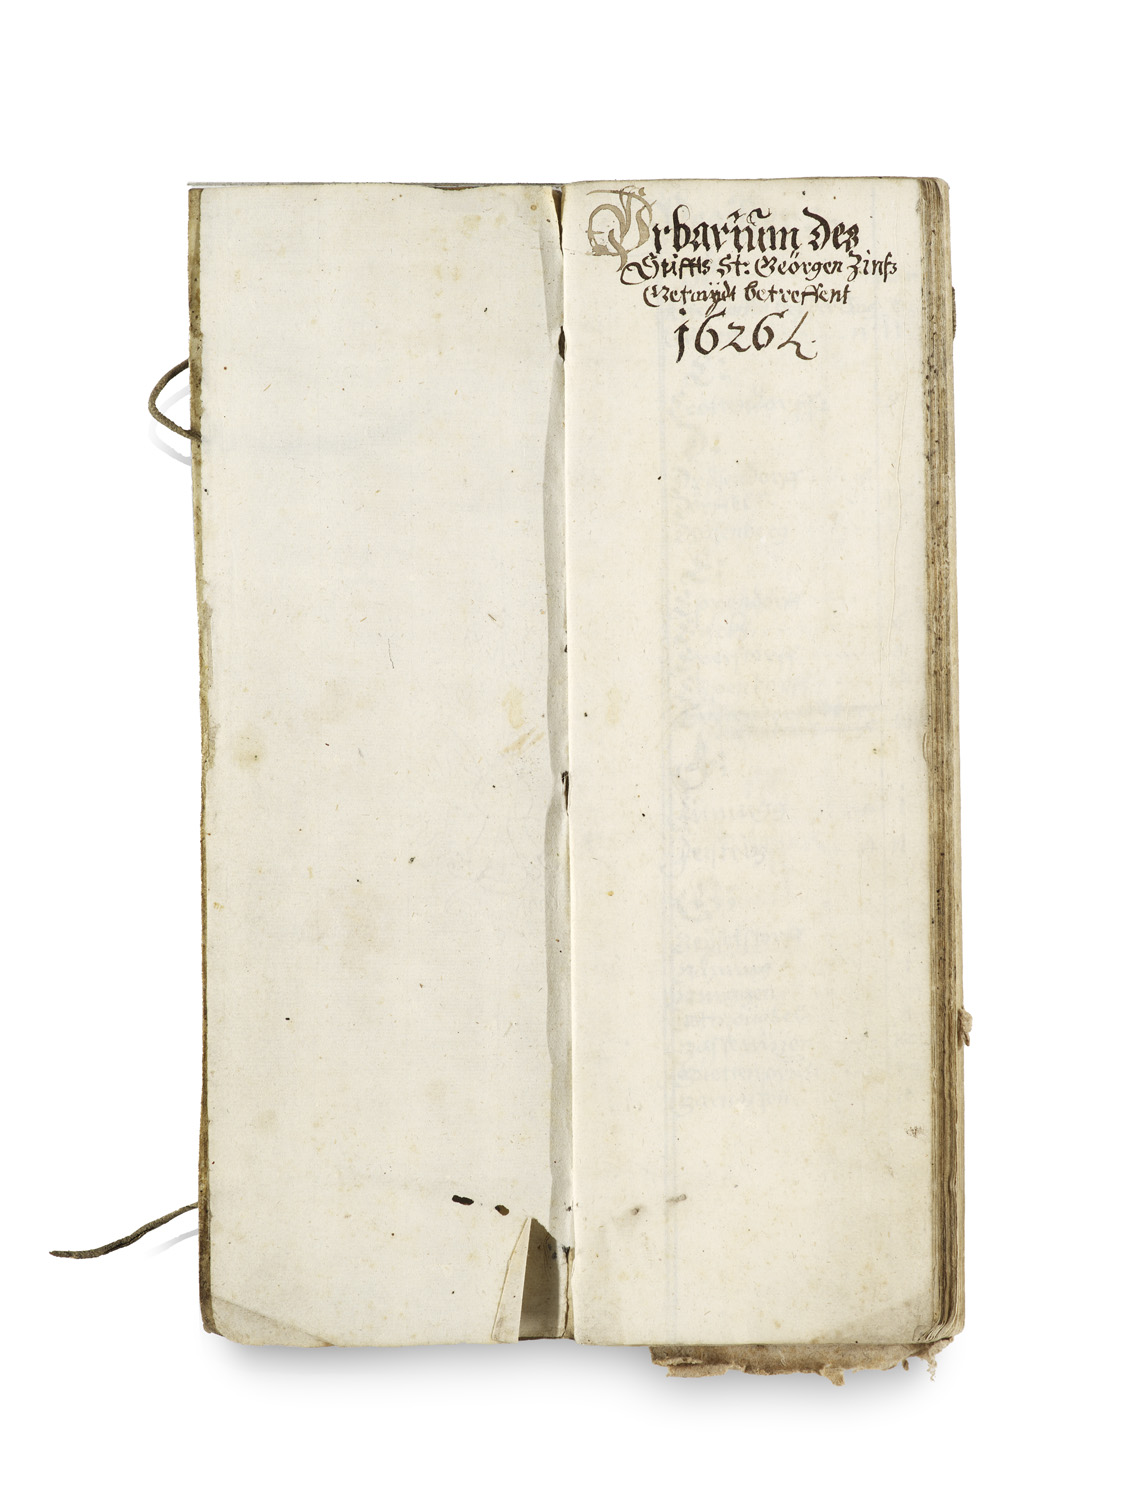 Vrbariüm des
Stiffts St: Geörgen Zinß
Getraÿdt betreffent
1626